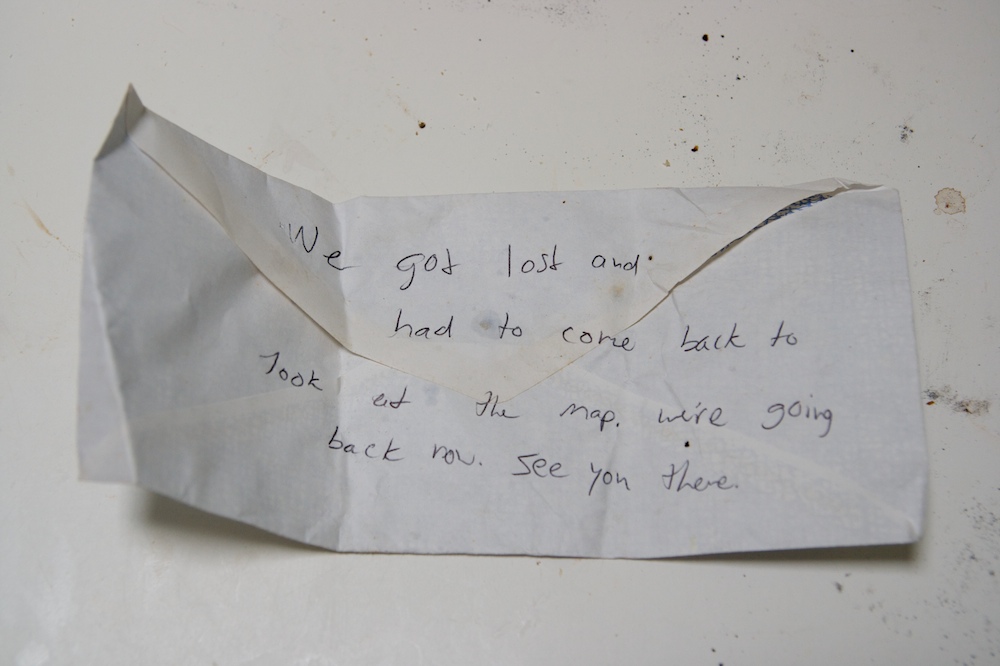 We got lost and
had to come back to
look at the map. we're going
back now. See you there.